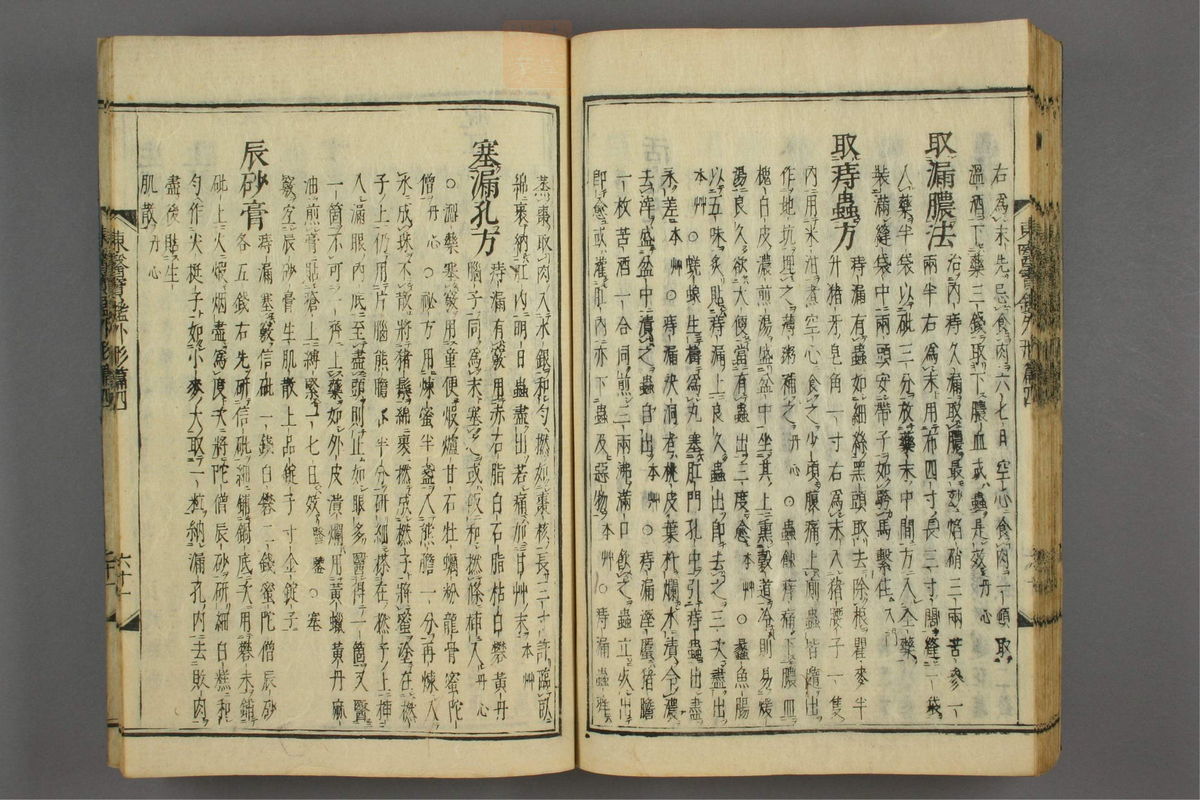 右爲末先忌食肉六七日空心食肉一頓取
溫酒下藥三錢取下膿血或蟲是效丹心
取漏膿法
治內痔久漏取膿最妙焰硝三兩苦參一
兩半右爲末用布四寸長三寸闊縫一袋
入藥半袋以砒三分放藥末中間方入全藥
裝滿縫袋中兩頭安帶子如騎馬繫住入門
取痔蟲方
痔漏有蟲如細絲黑頭取去除根瞿麥半
升猪牙皂角一寸右爲末入猪腰子一隻
內用米泔煮空心食之少頃腹痛上厠蟲皆隨出
作地坑埋之薄粥補之丹心○蟲蝕痔痛下膿血
槐白皮濃煎湯盛盆中坐其上熏穀道冷則易煖
湯良久欲大便當有蟲出三度愈本草○鱉魚腸
以五味炙貼痔漏上良久蟲出卽去之三次盡出
本草○蜣蜋生擣爲丸塞肛門孔中引痔蟲出盡
永差本草○痔漏決洞者桃皮葉杵爛水漬令濃
去滓盛盆中漬之蟲自出本草○痔漏溼䘌猪膽
一枚苦酒一合同煎三兩沸滿口飮之蟲立死出
卽愈或灌肛內亦下蟲及惡物本草○痔漏蟲痒
蒸棗取肉入水銀和勻撚如棗核長三寸許臨臥
綿裹納肛內明日蟲盡出若痛加甘草末本草
塞漏孔方
痔漏有竅用赤石脂白石脂枯白礬黃丹
腦子同爲末塞之或飯和撚條揷入丹心
○漏藥塞竅用童便煅爐甘石牡蠣粉龍骨蜜陀
僧丹心○祕方用煉蜜半盞入熊膽一分再煉入
水成珠不散將猪鬃綿裹撚成撚子將蜜塗在撚
子上仍用片腦熊膽各半分硏細糝在撚子上揷
入漏眼內底至盡頭則止如眼多醫得一箇又醫
一箇不可一齊上藥如外皮潰爛用黃蠟黃丹麻
油煎膏貼瘡上縛緊一七日效醫鑑○塞
竅名辰砂膏生肌散上品錠子寸金錠子
辰砂膏
痔漏塞竅信砒一錢白礬二錢蜜陀僧辰砂
各五錢右先硏信砒細鋪鍋底次用礬末鋪
砒上火煅烟盡爲度次將陀僧辰砂硏細白糕和
勻作尖梃子如小麥大取二粒納漏孔內去敗肉
盡後貼生
肌散丹心
東醫寶鑑外形篇四
六十一